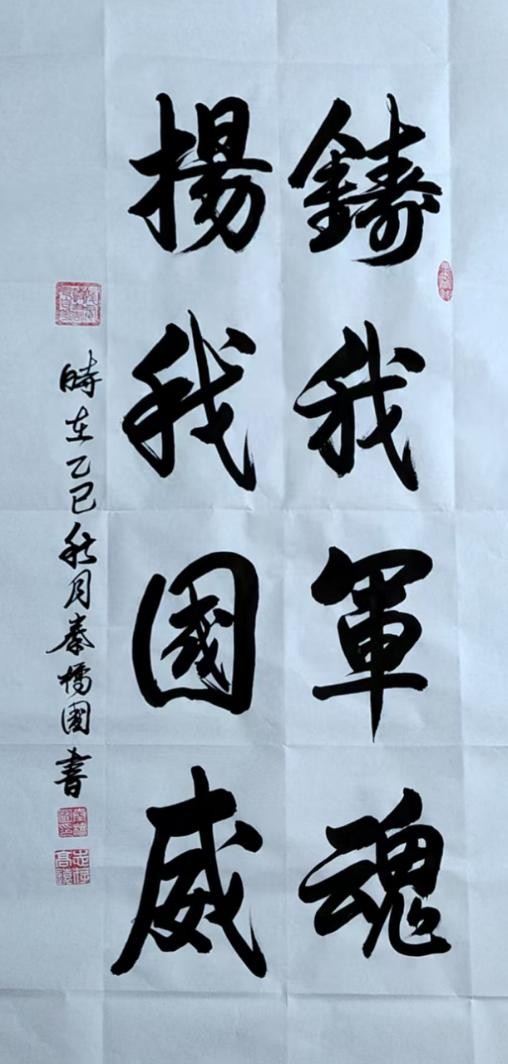 鑄我軍魂
揚我國威
時在乙巳秋月秦橋國書